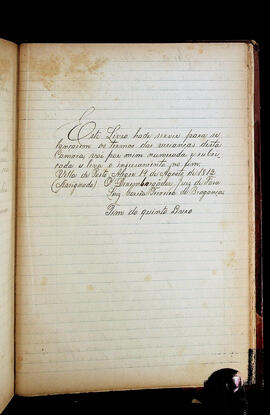 Este Livro hade servir para se
lançarem os termos das vereanças desta
Camara, vai por mim numerado e rubri-
cado e leva o encerramento no fim.
Villa de Porto Alegre 14 de Agosto de 1812
(Assignado) O Dezembargador Juiz de Fora
Luiz Corrêa Teixeira de Bragança
Fim do quinto Livro